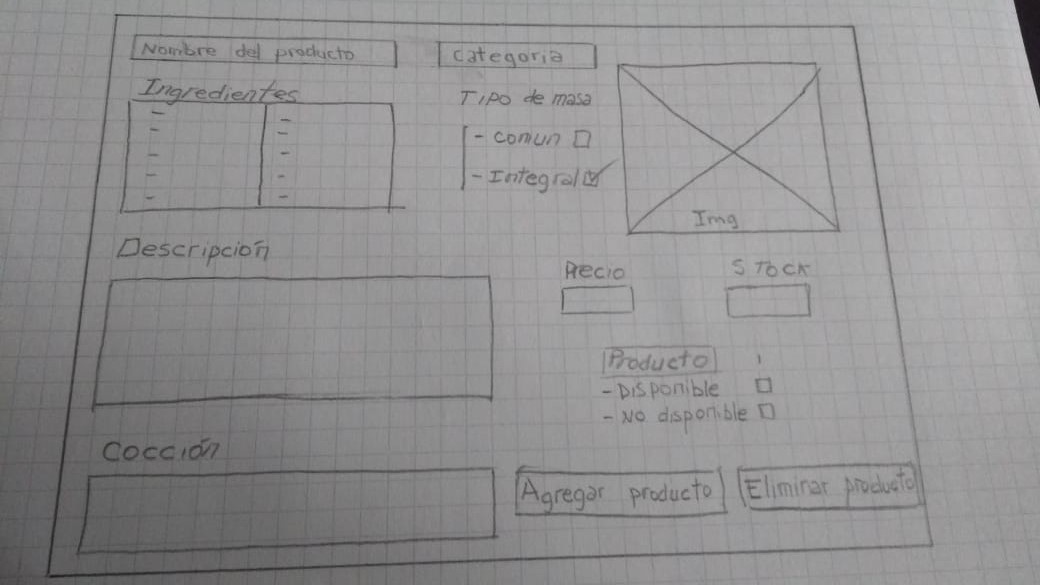 Nombre del producto
Categoria
Ingredientes
Tipo de masa
- Comun
- Integral
Img
Descripción
Precio
Stock
Producto
- Disponible
- No disponible
Cocción
Agregar producto
Eliminar producto